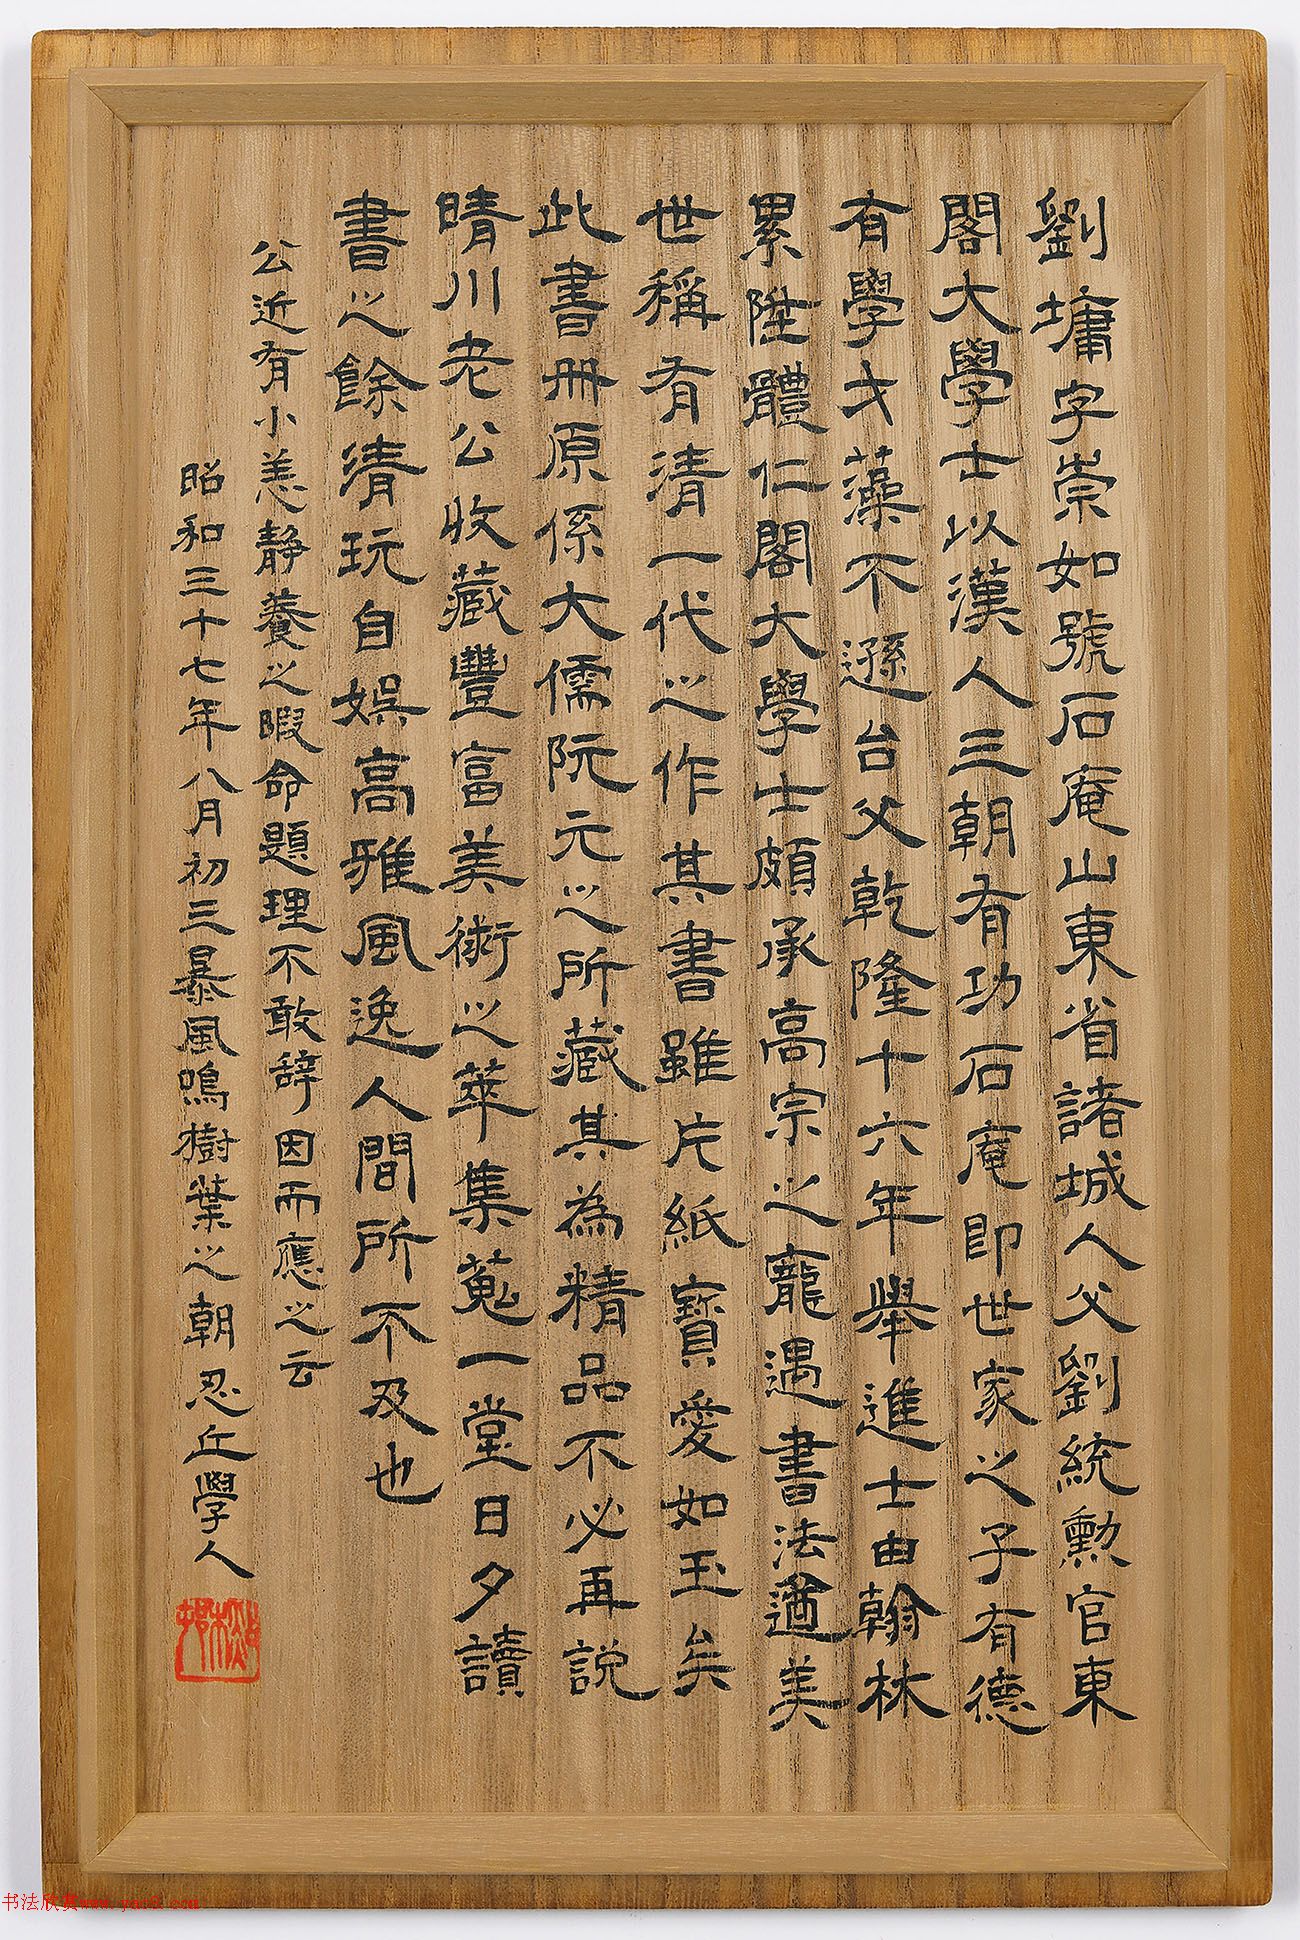 劉墉字崇如號石庵山東省諸城人父劉統勲官東
閣大學士以漢人三朝有功石庵即世家之子有德
有學才藻不遜台父乾隆十六年舉進士由翰林
累陞體仁閣大學士頗承高宗之寵遇書法遒美
世稱有清一代之作其書雖片紙寶愛如玉矣
此書册原係大儒阮元之所藏其為精品不必再説
晴川老公收藏豐富美術之萃集蒐一堂日夕讀
書之餘清玩自娯高雅風逸人間所不及也
公近有小恙靜養之暇命題理不敢辞因而應之云
昭和三十七年八月初三暴風鳴樹葉之朝忍丘學人
书法欣赏www.yac8.com